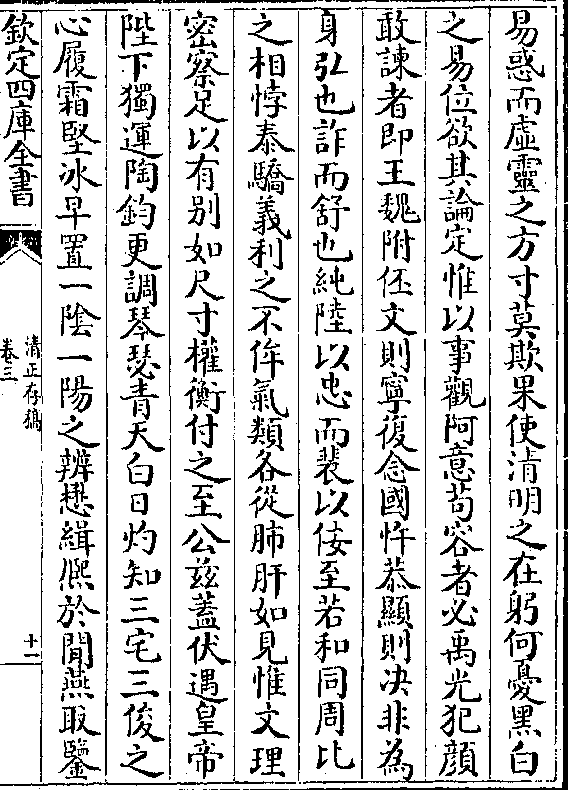 易惑而虛靈之方寸莫欺果使清明之在躬何憂黑白
之易位欲其論定惟以事觀阿意苟容者必禹光犯顔
敢諫者即王魏附伾文則寧復念國忤恭顯則决非為
身弘也詐而舒也純陸以忠而裴以佞至若和同周比
之相悖泰驕義利之不侔氣類各從肺肝如見惟文理
密察足以有别如尺寸權衡付之至公兹蓋伏遇皇帝
陛下獨運陶鈞更調琴瑟青天白日灼知三宅三俊之
心履霜堅冰早置一隂一陽之辨懋緝熈於閒燕取鑒
欽定四庫全書
清正存稿
卷三
十一